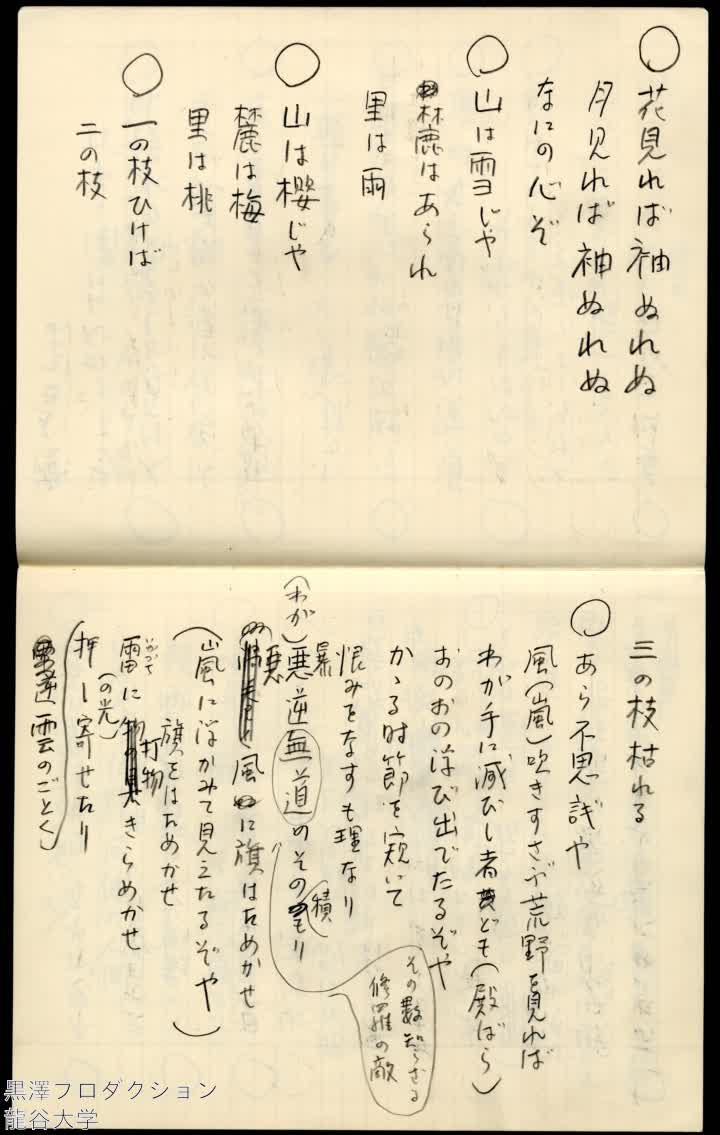 ○花見れば袖ぬれぬ
月見れば袖ぬれぬ
なにの心ぞ
○山は雪じや
麓はあられ
里は雨
○山は櫻じや
麓は梅
里は桃
○一の枝ひけば
二の枝
三の枝枯れる
○あら不思議や
風(嵐)吹きすさぶ荒野を見れば
わが手に滅びし者ども(殿ばら)
おのおの浮び出でたるぞや
かゝる時節を窺いて
恨みをなすも理なり
暴
(わが)悪逆無道のその積り
その数知らざる
修羅の敵
悪風に旗はためかせ
(嵐に浮かみて見えたるぞや)
旗をはためかせ
雷に打物きらめかせ
(の光)
押し寄せたり
雲のごとく)
黒澤プロダクション
龍谷大学